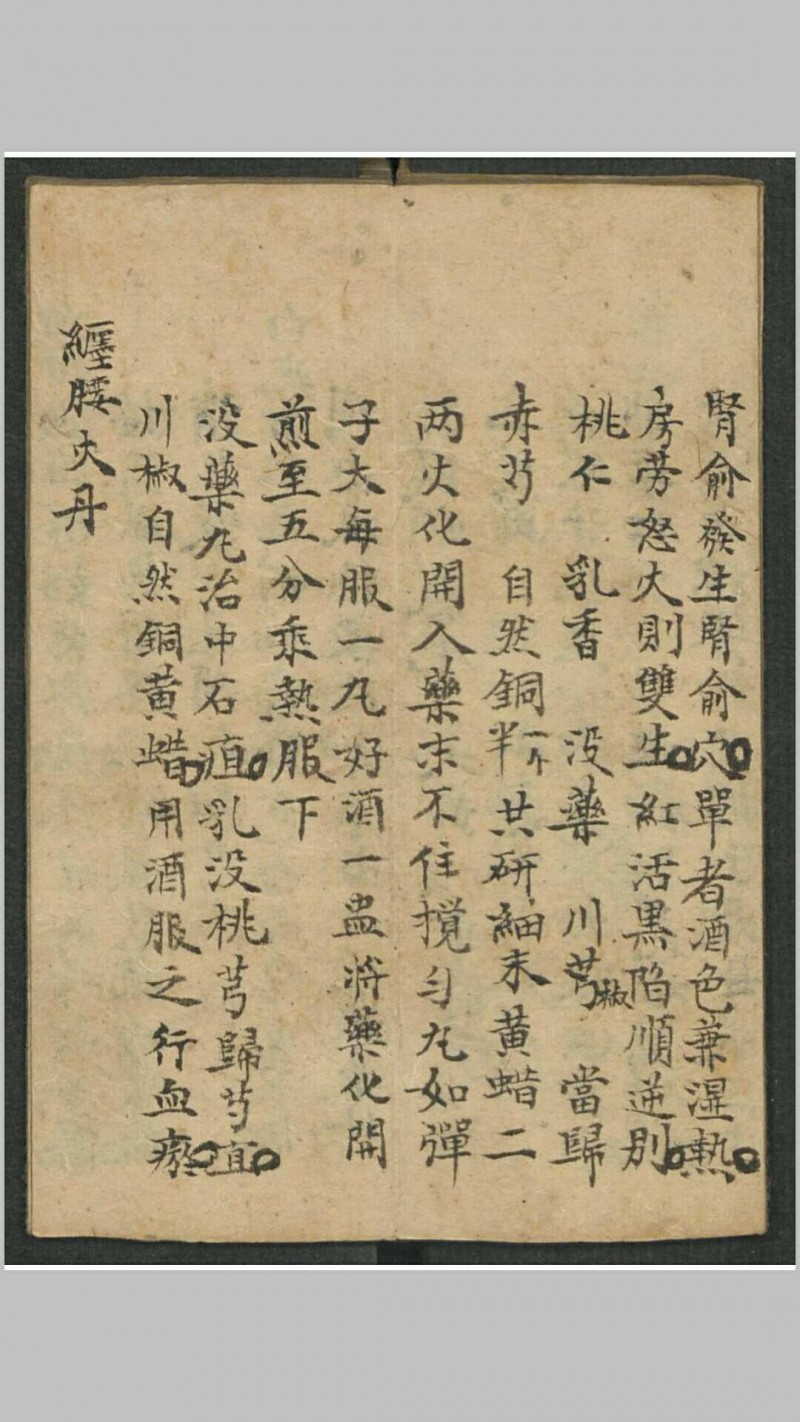 腎俞發生腎俞穴單者酒色兼濕熱
房勞怒火則雙生紅活黑陷順逆別
桃仁 乳香 没藥 川芎椒 當歸
赤芍 自然銅半一斤共研細末黄蜡二
两火化開入藥末不住攪匀丸如彈
子大每服一丸好酒一盅將藥化開
煎至五分乘熱服下
没藥丸治中石疽乳没桃芎歸芍宜
川椒自然銅黄蜡用酒服之行血瘀
纏腰火丹